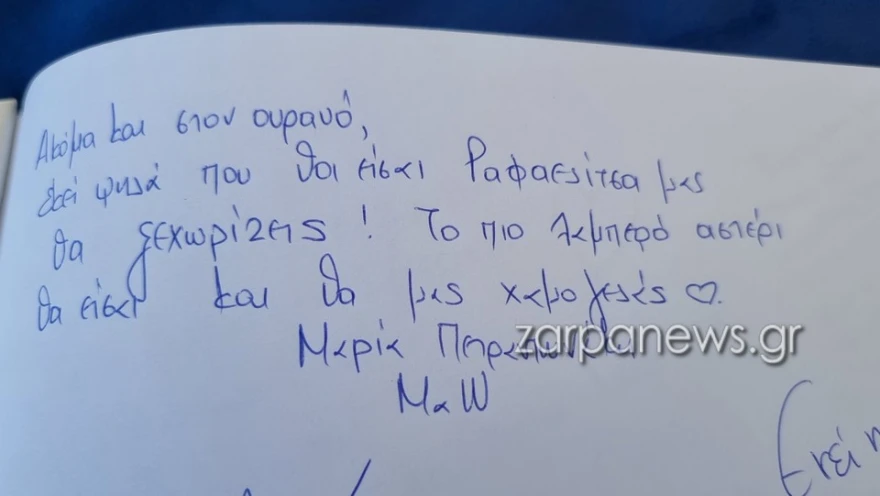 Ακόμα και στον ουρανό,
εκεί ψηλά που θαι είσαι Ραφαελίτσα μας
θα ξεχωρίζεις! Το πιο λαμπερό αστέρι
θα είσαι και θα μας χαμογελάς ♡.
zarpanews.gr
Μαρία